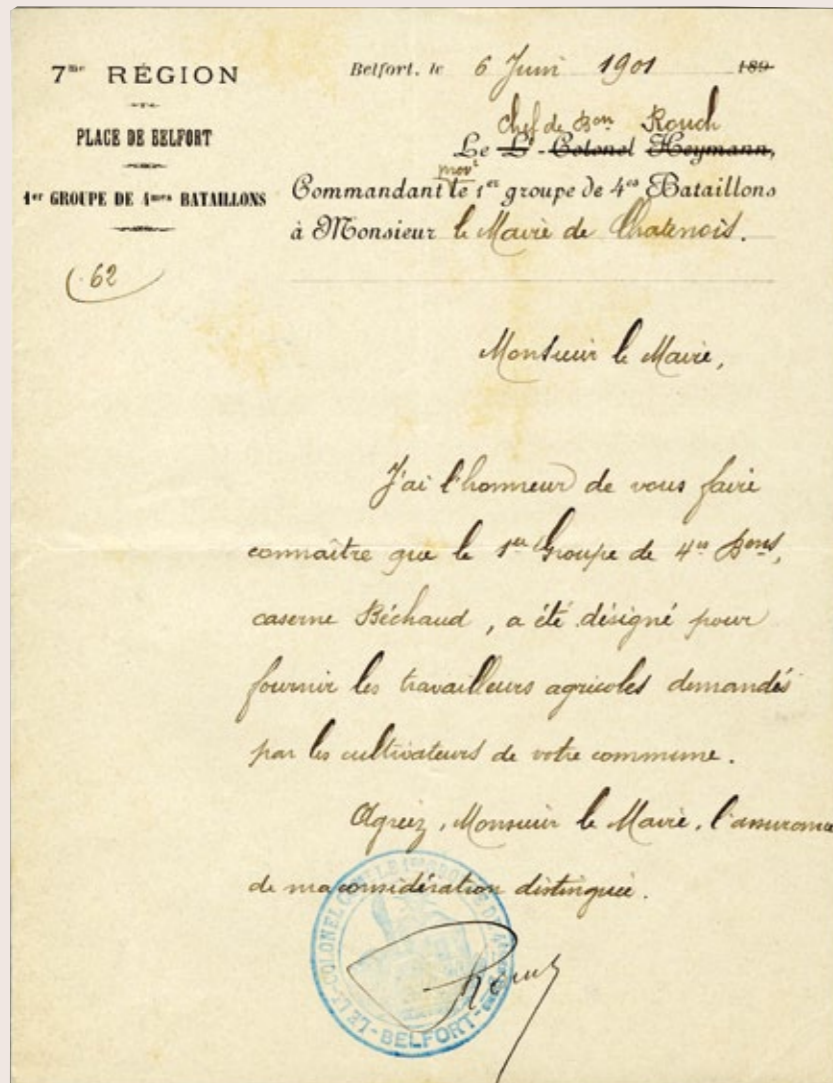 7me RÉGION
PLACE DE BELFORT
1er GROUPE DE 4mes BATAILLONS
62
Belfort, le 6 Juin 1901 189
Chef de Bon Rouch
Le Lt-Colonel Heymann,
provt
Commandant le 1er groupe de 4es Bataillons
à Monsieur le Maire de Chatenois.
Monsieur le Maire,
J'ai l'honneur de vous faire
connaître que le 1er Groupe de 4es Bons,
caserne Béchaud, a été désigné pour
fournir les travailleurs agricoles demandés
par les cultivateurs de votre commune.
Agréez, Monsieur le Maire, l'assurance
de ma considération distinguée.
LE LT-COLONEL
BELFORT